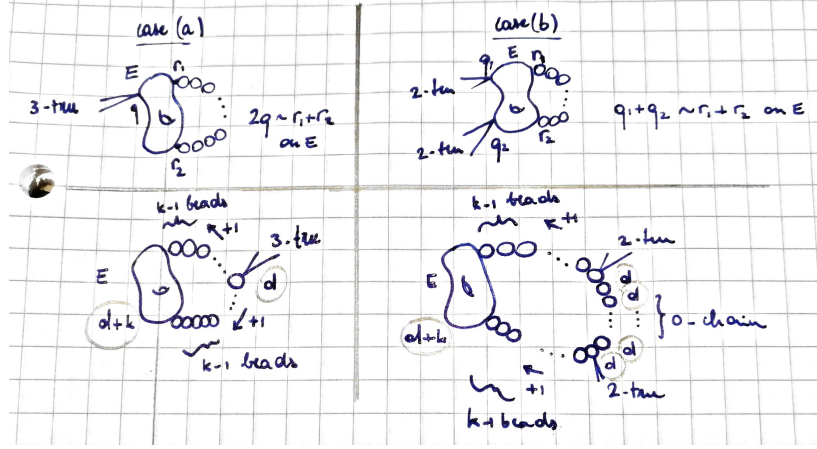 case (a)
E
r₁
3-tree
q
r₂
2q ~ r₁+r₂
on E
case (b)
E
q₁
r₁
2-tree
2-tree
q₂
r₂
q₁+q₂ ~ r₁+r₂ on E
k-1 beads
+1
3-tree
E
d
d+k
+1
k-1 beads
k-1 beads
+1
2-tree
E
d
d
0-chain
d+k
d
d
+1
2-tree
k-1 beads